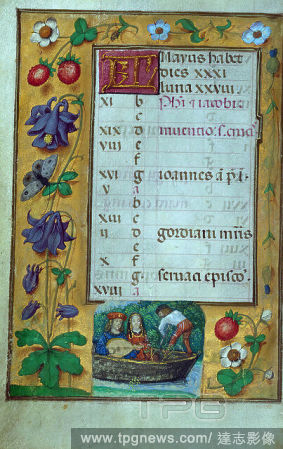 Mayus habet
dies xxxi
luna xxviii
xi b Phi 7 iacobi
c
xix d inuentio s. cruc
viii e
f
xvi g Joannes
v a
b
xiii c
ii d gordiani
e
x f
g seruaci episco.
xviii a
TPG
www.tpgnews.com/達志影像